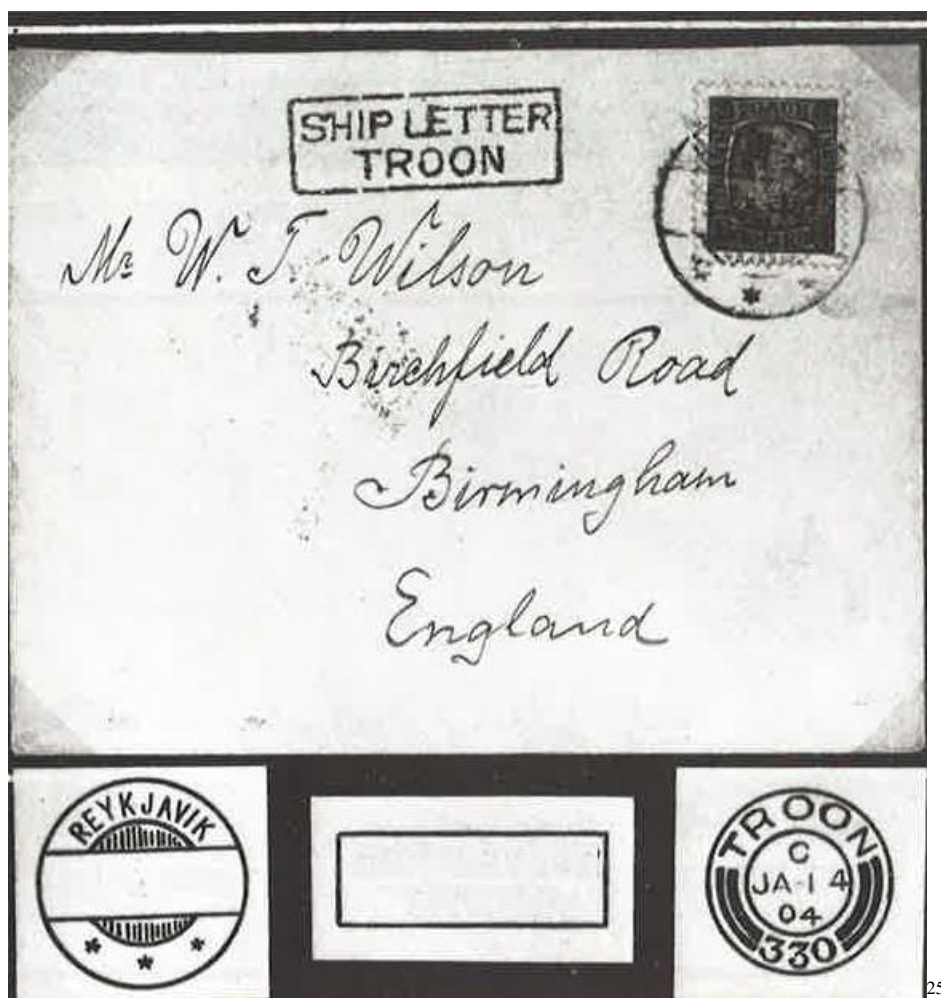 SHIP LETTER
TROON
Mr W. T. Wilson
Birchfield Road
Birmingham
England
REYKJAVIK
TROON
C
JA-14
04
330
25